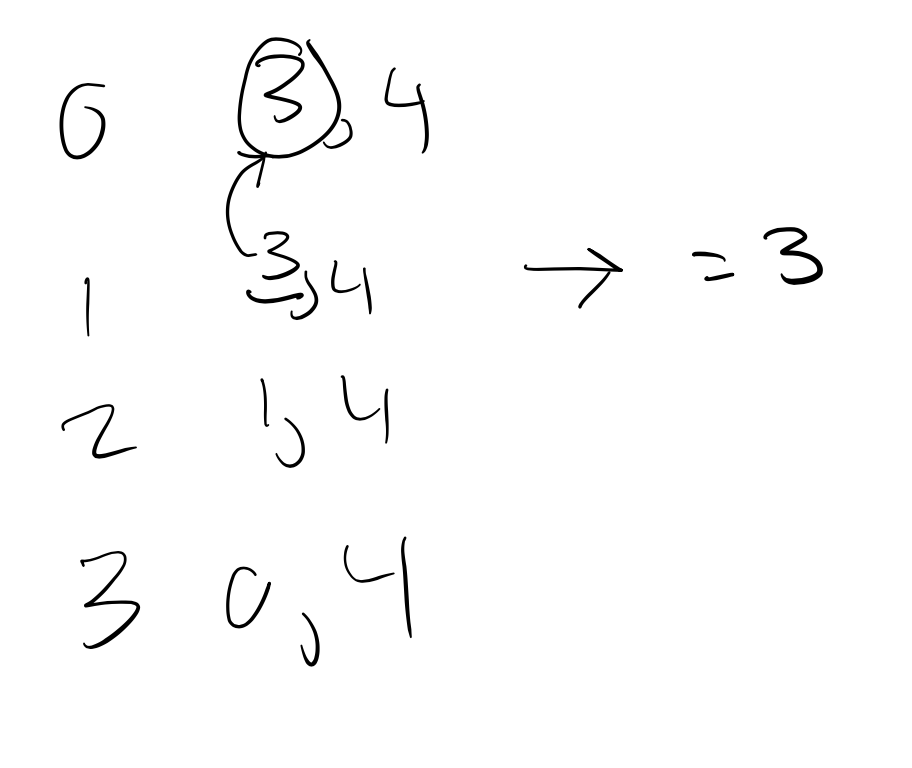 0 3, 4
1 3, 4 → = 3
2 1, 4
3 0, 4